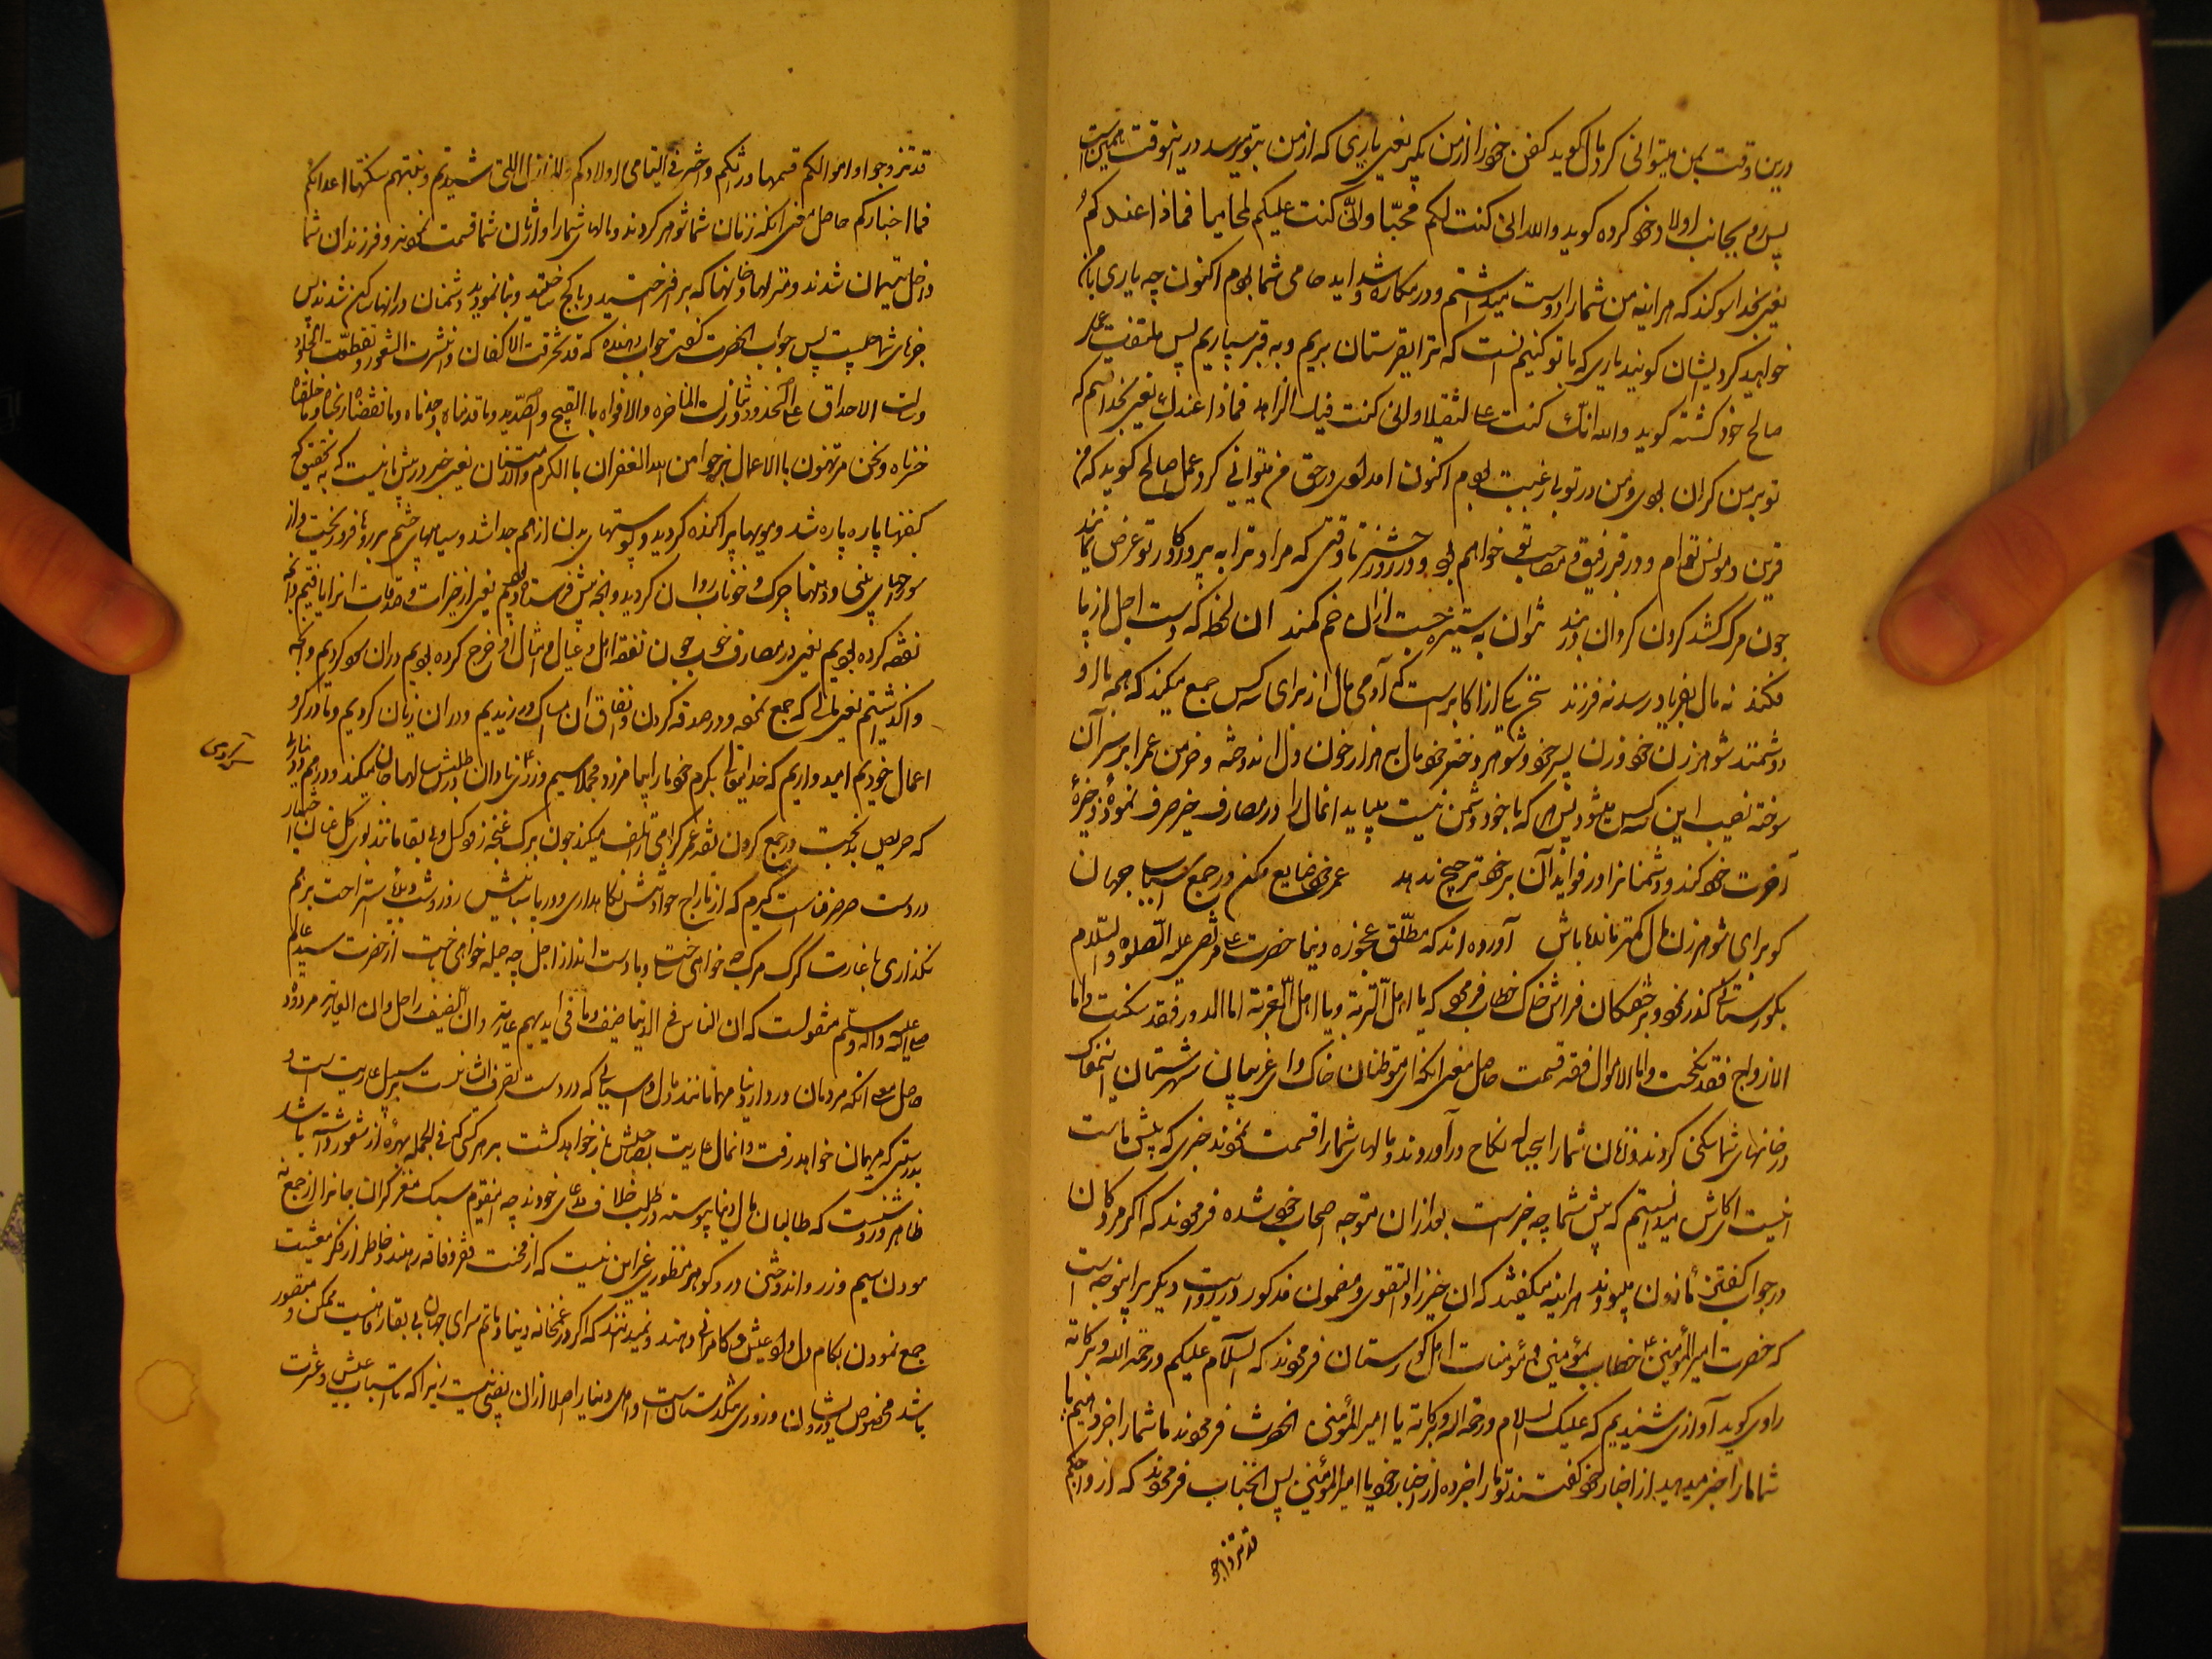 درین وقت بمن میتوانی کرد مال گوید کفن خود را از من بگیر یعنی یاری که از من بتو میرسد در اینوقت همین است
پس رو بجانب اولاد خود کرده گوید والله انی کنت لکم محبا وانی کنت علیکم لمحامیا فماذا عندکم
یعنی بخدا سوکند که هر اینه من شما را دوست میداشتم و در مکاره و شداید حامی شما بودم اکنون چه یاری با من
خواهید کرد ایشان کویند یاری که با تو کنیم انست که ترا بقبرستان بریم و به قبر سپاریم پس ملتفت عمل
صالح خود کشته کوید والله انک کنت علی لثقیلا وانی کنت فیک الزاهد فماذا عندک یعنی بخدا قسم که
تو بر من کران بودی و من در تو بی رغبت بودم اکنون امداد در حق من میتوانی کرد عمل صالح کوید که من
قرین و مونس توام و در قبر رفیق و مصاحب تو خواهم بود و در روز حشر تا وقتی که مرا و ترا به پروردکار تو عرض نمایند
چون مرک کشد کردن کردان در بند نتوان به ستیزه جست ازان خم کمند ان لحظه که دست اجل از پا
فکند نه مال بفریاد رسد نه فرزند سخن یکی از اکابر است که آدمی مال از برای سه کس جمع میکند که همه با او
دشمنند شوهر زن خود و زن پسر خود و شوهر دختر خود مال به هزار خون دل اندوخته و خرمن عمر بر سر آن
سوخته نصیب این سه کس میشود پس هر که با خود دشمن نیست میباید انمال را در مصارف خیر صرف نموده ذخیرهٔ
آخرت خود کند و دشمنان را در فواید آن بر خود ترجیح ندهد عمر خود ضایع مکن در جمع اسباب جهان
کو برای شوهر زن مال کمتر مانده باش آورده اند که مطلق عجوزه دنیا حضرت علی مرتضی علیه الصلوة والسلام
بکورستانی کذر نمود و بر خفتکان فراش خاک خطاب فرمود که یا اهل التربة ویا اهل الغربة اما الدور فقد سکنت واما
الازواج فقد نکحت واما الاموال فقد قسمت حاصل معنی انکه ای متوطنان خاک و ای غریبان شهرستان
در خانهای شما سکنی کردند و زنان شما را بحباله نکاح درآوردند و مالهای شما را قسمت نمودند خبری که پیش ماست
اینست ای کاش میدانستیم که پیش شما چه خبر است بعد ازان متوجه اصحاب خود شده فرمودند که اکر مردکان
در جواب کفتن ماذون میبودند هر اینه میکفتند که ان خیر الزاد التقوی و مضمون مذکور در روایت دیکر براینوجه است
که حضرت امیر المؤمنین خطاب بمؤمنین و مؤمنات اهل کورستان فرمودند که السلام علیکم ورحمة الله وبرکاته
راوی کوید آوازی شنیدیم که علیک السلام ورحمة الله وبرکاته یا امیر المؤمنین انحضرت فرمودند ما شما را خبر دهیم یا
شما ما را خبر میدهید از اخبار خود کفتند تو ما را خبر ده از اخبار خود یا امیر المؤمنین پس انجناب فرمودند که ازواجکم
قد تزوجوا
قد تزوجوا واموالکم قسمها ورثتکم وحشر فی الیتامی اولادکم والمنازل اللتی شیدتم وبنیتم سکنها اعداءکم
فما اخبارکم حاصل معنی انکه زنان شما شوهر کردند و مالهای شما را وارثان شما قسمت نمودند و فرزندان شما
داخل یتیمان شدند و منزلها و خانها که بر افراختید و با کچ ساختید و بنا نمودید دشمنان در انها ساکن شدند پس
خبرهای شما چیست پس جواب انحضرت کفت جواب دهنده که قد تخرقت الاکفان وانتشرت الشعور وتقطعت الجلود
وسالت الاحداق علی الخدود وتنازلت المناخرة والافواه باالقیح والصدید وما قدمناه وجدناه وما انفقناه ربحناه وما خلفناه
خسرناه ونحن مرتهنون باالاعمال نرجوا من الله الغفران باالکرم والامتنان یعنی خبر در پیش ما اینست که به تحقیق که
کفنها پاره پاره شد و مویها پراکنده کردید و پوستهای بدن از هم جدا شد و سیاهیهای چشم بر روها فرو ریخت و از
سوراخهای بینی و دهنها چرک و خوناب روان کردید و انچه پیش فرستاده بودیم یعنی از خیرات و صدقات انرا یافتیم و انچه
نفقه کرده بودیم یعنی در مصارف خوب چون نفقه اهل و عیال و امثال ان خرج کرده بودیم دران سود کردیم و انچه
واکذاشتیم یعنی مالی که جمع نموده و در صدقه کردن و انفاق ان امساک ورزیدیم دران زیان کردیم و ما در کرو
اعمال خودیم امیدواریم که خدایتعالی بکرم خود ما را بیامرزد مجملا سیم و زری که نادان در طلبش سالها جان میکند و درهم و دیناری
که حریص بدبخت در جمع کردن نقد عمر کرامی تلف میکند چون برک غنچه زود کسل و بی بقا مانند بوی کل عنان اختیار
در دست صرصر فناست کیرم که از تاراج حوادثش نکاهداری و در پاسبانیش روز و شب دیدهٔ استراحت بر هم
نکذاری با غارت کرک مرک چه خواهی ساخت و با دست انداز اجل چه حیله خواهی انگیخت از حضرت سید عالم
صلی الله علیه واله وسلم منقولست که ان الناس فی الدنیا ضیف وما فی ایدیهم عاریة وان الضیف راحل وان العاریة مردودة
حاصل معنی انکه مردمان در دار دنیا مهمانانند و مال و اسبابی که در دست تصرف ایشانست بر سبیل عاریت است و
بدرستیکه میهمان خواهد رفت و انمال عاریت بصاحبش باز خواهد کشت بر هر کسی که فی الجمله بهرهٔ از شعور داشته باشد
ظاهر و روشنست که طالبان مال دنیا پیوسته در طلب خلاف مدعای خودند چه اینقوم سبک مغز کران جان را از جمع
نمودن سیم و زر و اندوختن در و کوهر منظوری غیر این نیست که از محنت فقر و فاقه رهند و خاطر از فکر معیشت
جمع نمودن بکام دل داد عیش و کامرانی دهند و نمیدانند که اکر در غمخانه دنیا و ماتم سرای جهان بی بقا رفاهیت ممکن و مقصور
باشد مخصوص درویشان و روزی تنکدستان است و اهل دنیا را اصلا ازان نصیبی نیست زیرا که با اسباب عیش و عشرت